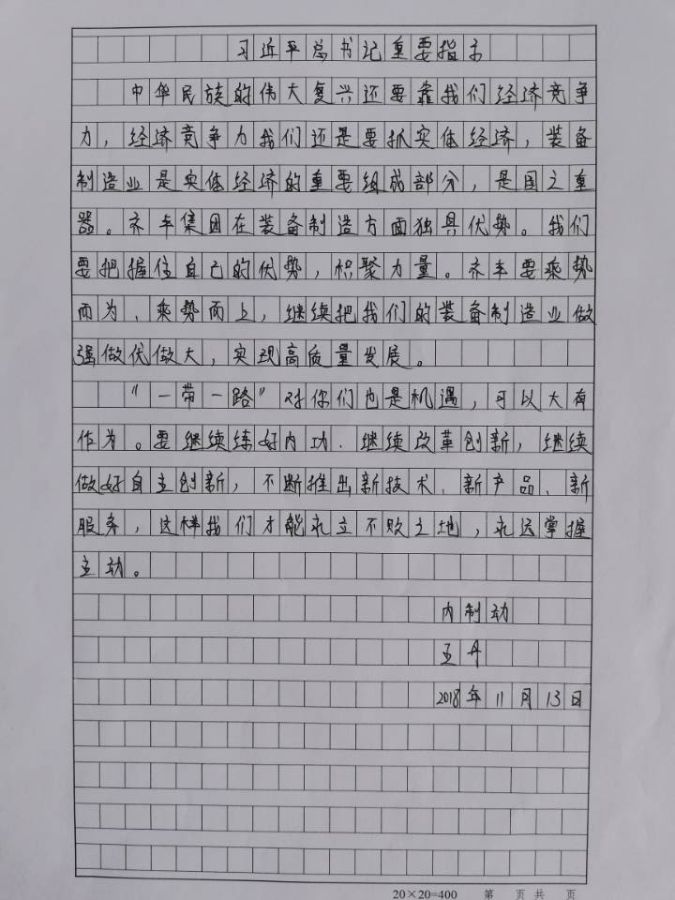 习近平总书记重要指示
中华民族的伟大复兴还要靠我们经济竞争
力，经济竞争力我们还是要抓实体经济，装备
制造业是实体经济的重要组成部分，是国之重
器。齐车集团在装备制造方面独具优势。我们
要把握住自己的优势，积聚力量。齐车要乘势
而为、乘势而上，继续把我们的装备制造业做
强做优做大，实现高质量发展。
“一带一路”对你们也是机遇，可以大有
作为。要继续练好内功、继续改革创新，继续
做好自主创新，不断推出新技术、新产品、新
服务，这样我们才能永立不败之地，永远掌握
主动。
内制动
王丹
2018年11月13日
20×20=400 第 页 共 页